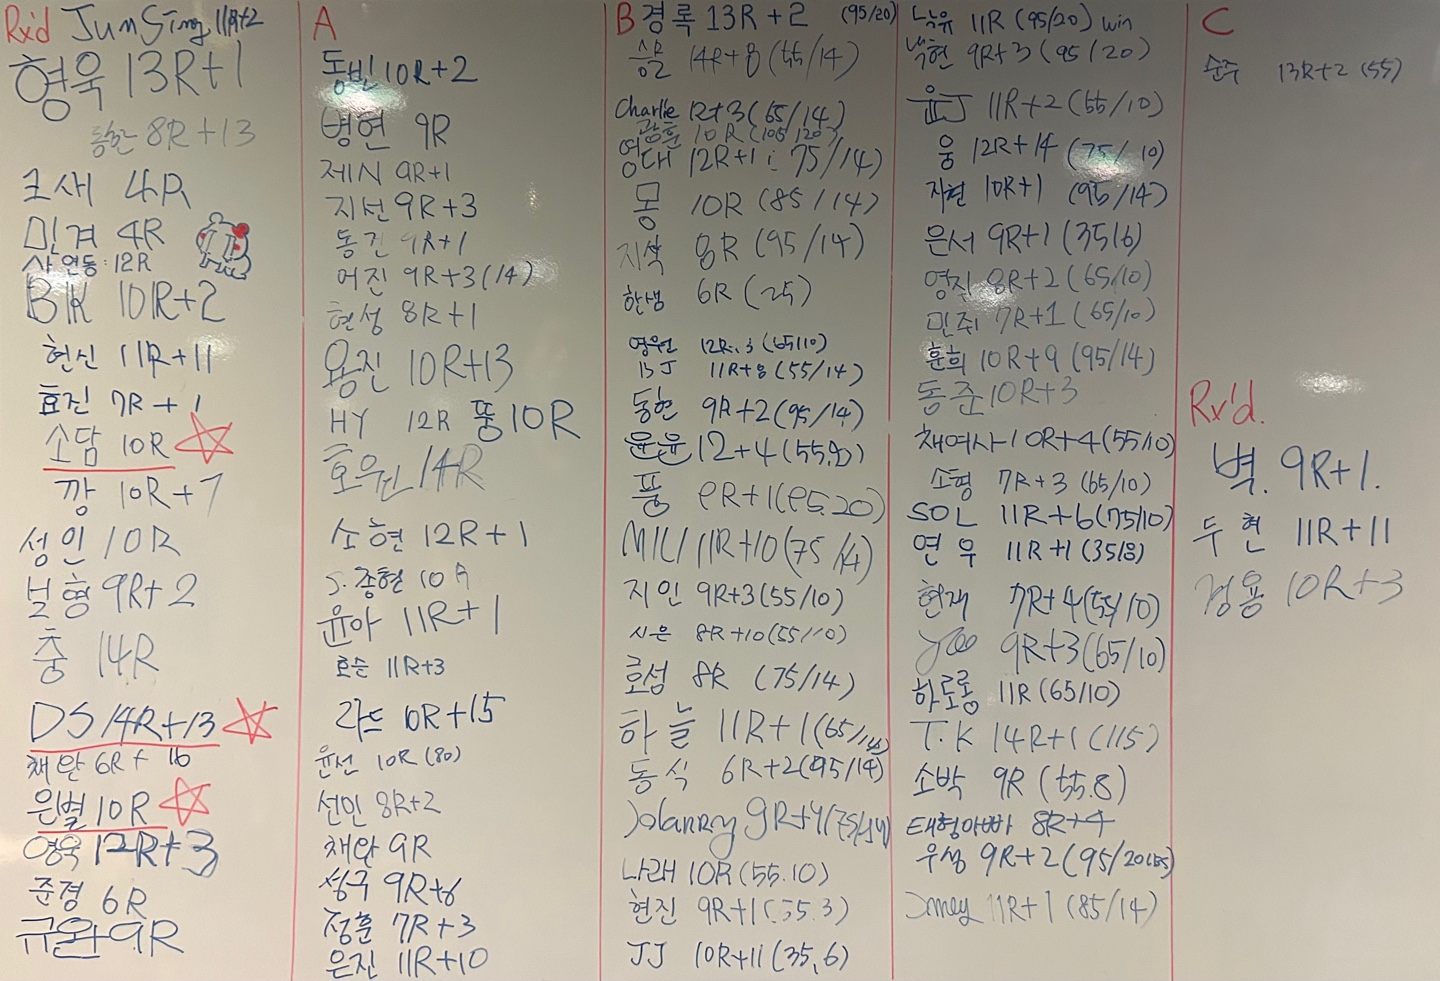 Rx'd JunSing 11R+2
형욱 13R+1
동한 8R+13
조새 4R
민겸 4R
사연동: 12R
BK 10R+2
헌신 11R+11
효진 7R+1
소담 10R
깡 10R+7
성인 10R
보형 9R+2
충 14R
DS 14R+13
채완 6R+16
은별 10R
영욱 12R+3
준경 6R
규완 9R
A
동빈 10R+2
병현 9R
제시 9R+1
지선 9R+3
동건 9R+1
여진 9R+3(14)
현성 8R+1
용진 10R+13
HY 12R 뚱 10R
호원 14R
소현 12R+1
S.종현 10R
윤아 11R+1
효순 11R+3
라드 10R+15
윤선 10R (80)
선민 8R+2
채완 9R
성구 9R+6
정훈 7R+3
은진 11R+10
B 경록 13R+2 (95/20)
승모 14R+8 (55/14)
Charlie 12R+3 (65/14)
광훈 10R (105/20)
영대 12R+1 (75/14)
몽 10R (85/14)
지석 8R (95/14)
한샘 6R (25)
영원 12R+3 (65/10)
BJ 11R+8 (55/14)
동현 9R+2 (95/14)
윤윤 12+4 (55.10)
풍 9R+1 (95.20)
MILI 11R+10 (75/14)
지인 9R+3 (55/10)
시은 8R+10 (55/10)
호섭 8R (75/14)
하늘 11R+1 (65/14)
동식 6R+2 (95/14)
9R+4 (75/14)
나래 10R (55.10)
현진 9R+1 (55.3)
JJ 10R+11 (35,6)
11R (95/20) win
낙현 9R+3 (95/20)
윤J 11R+2 (55/10)
웅 12R+14 (75/10)
지현 10R+1 (95/14)
은서 9R+1 (35/6)
영지 8R+2 (65/10)
민주 7R+1 (65/10)
훈희 10R+9 (95/14)
동준 10R+3
채여사 10R+4 (55/10)
소형 7R+3 (65/10)
SOL 11R+6 (75/10)
연우 11R+1 (35/8)
현재 7R+4 (55/10)
Joo 9R+3 (65/10)
하로롱 11R (65/10)
T.K 14R+1 (115)
소박 9R (55.8)
태형아빠 8R+4
우성 9R+2 (95/20
11R+1 (85/14)
C
순주 13R+2 (55)
Rx'd.
벽. 9R+1.
두현 11R+11
경용 10R+3